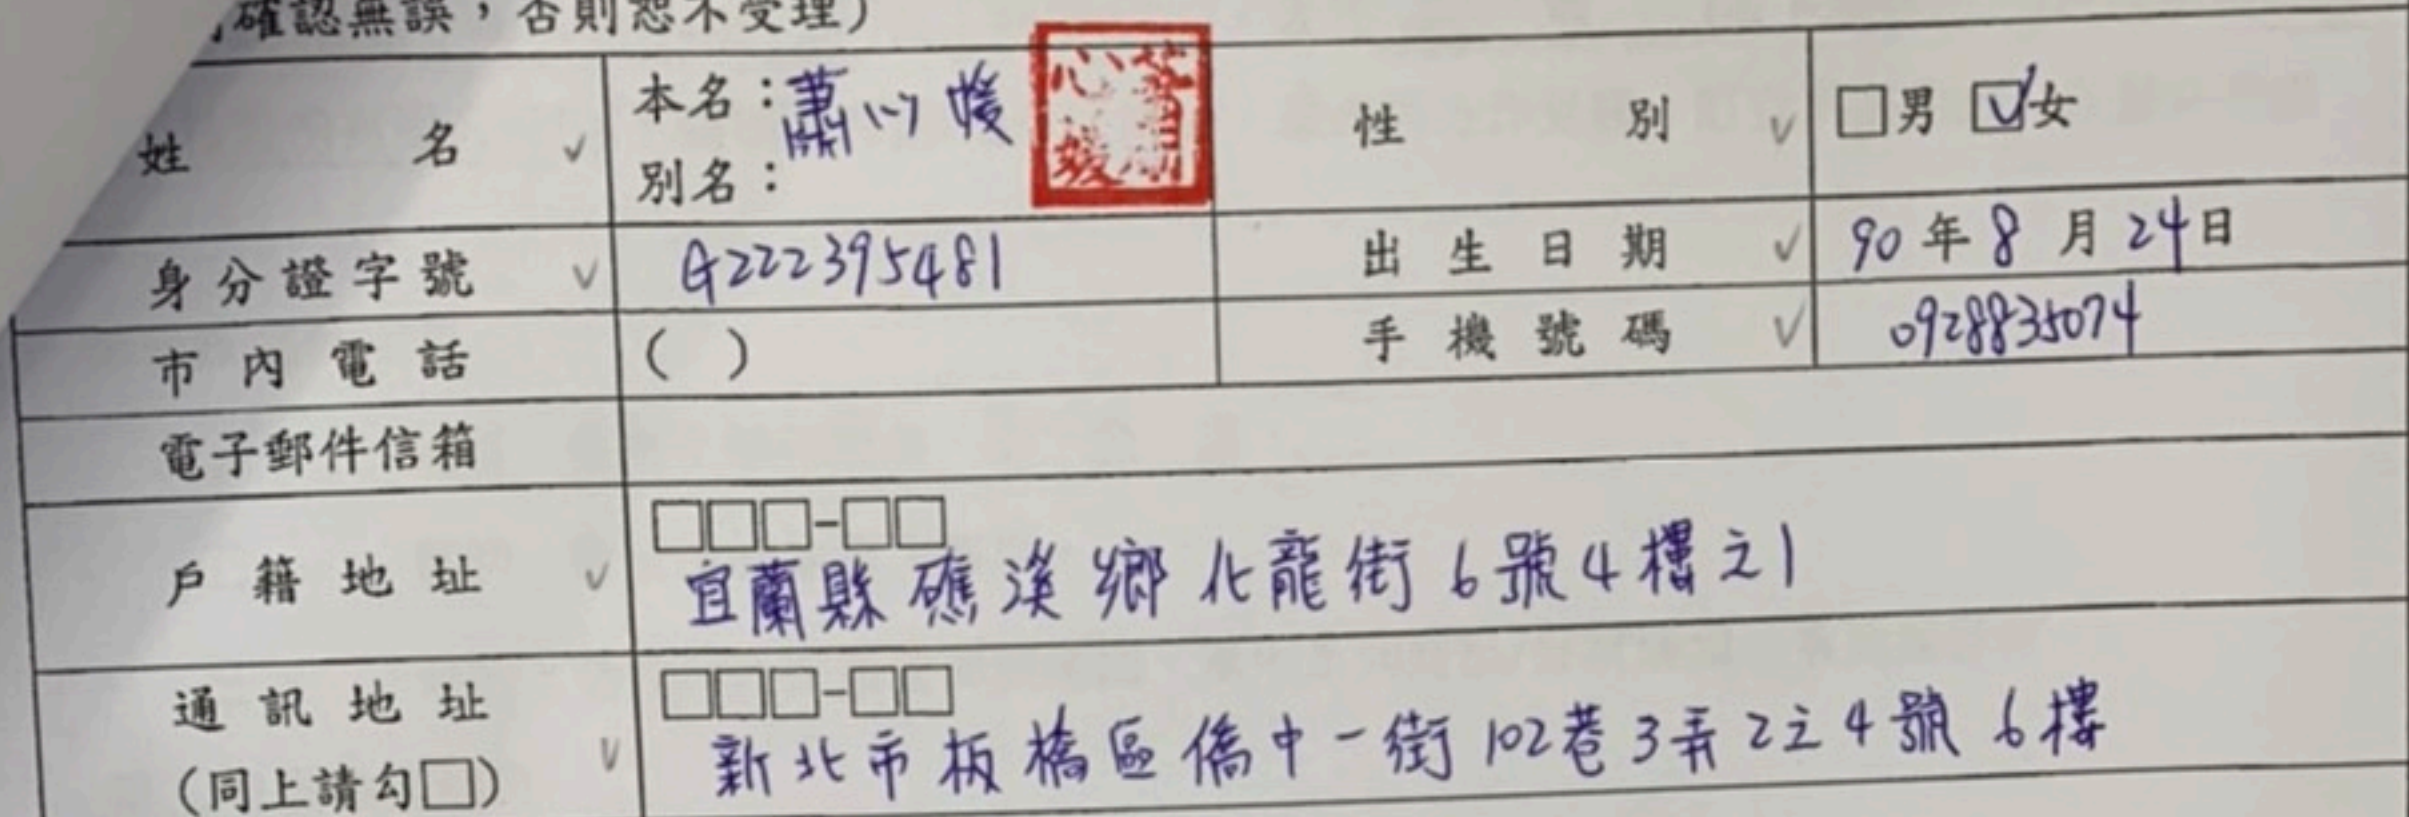 確認無誤，否則恕不受理）
姓名 ∨ 本名：蕭心媛 性別 ∨ □男 ☑女
別名：
蕭心媛
身分證字號 ∨ G222395481 出生日期 ∨ 90年8月24日
市內電話 （ ） 手機號碼 ∨ 0928835074
電子郵件信箱
□□□-□□
戶籍地址 ∨ 宜蘭縣礁溪鄉化龍街6號4樓之1
□□□-□□
通訊地址 ∨ 新北市板橋區僑中一街102巷3弄2之4號6樓
（同上請勾□）